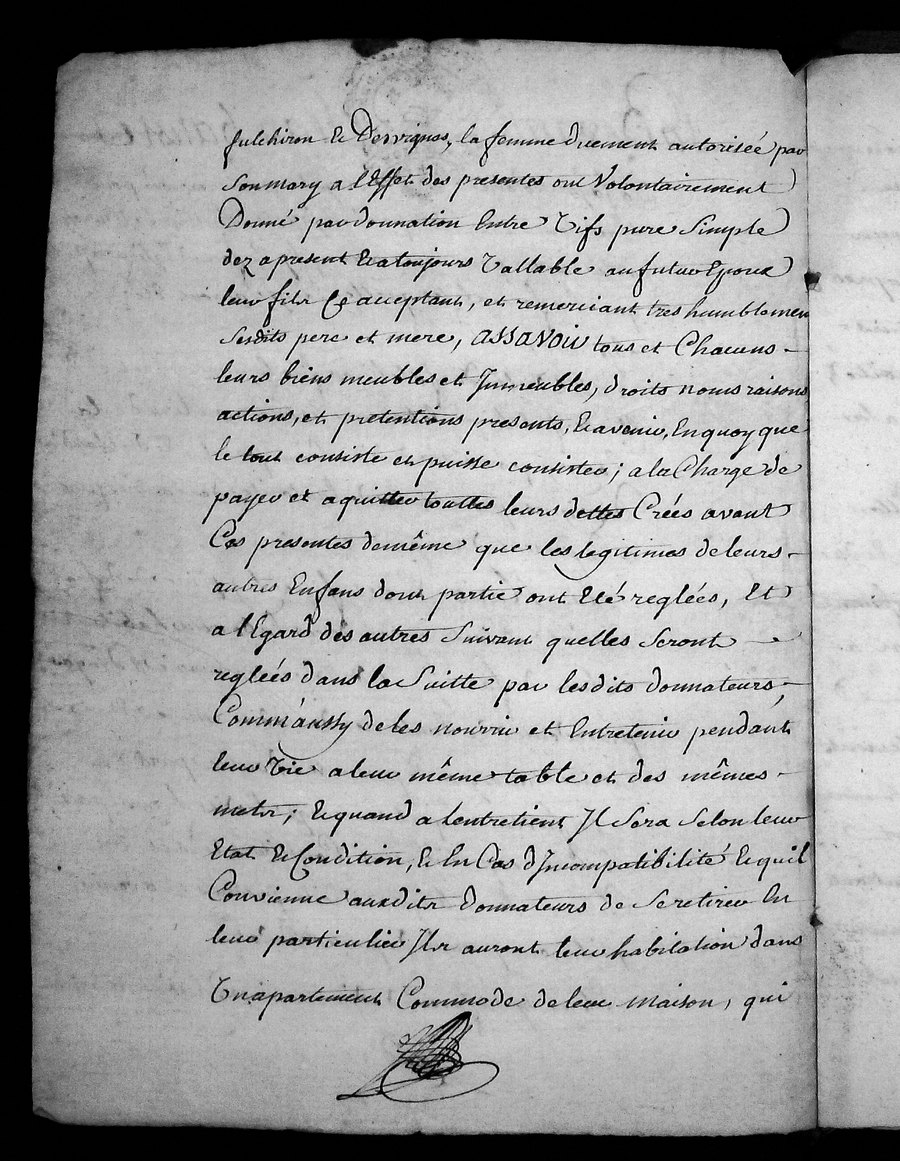 fulchiron & Desvignes, la femme duement autorisée par
Son mary a l'Effet des presentes ont Volontairement
Donné par donnation Entre Vifs pure Simple
dez apresent & atoujours Vallable au futur Epoux
leur fils Ce acceptant, et remerciant tres humblemen
Sesdits pere et mere, ASSAVOIR tous et Chacuns -
leurs biens meubles et Immeubles, droits noms raisons
actions, et pretentions presents, & avenir, En quoy que
le tout consiste et puisse consister; a la Charge de
payer et aquitter touttes leurs dettes Crées avant
Ces presentes demême que les legitimes de leurs -
autres Enfans dont partie ont Eté reglées, Et
a l'Egard des autres Suivant quelles Seront -
regléés dans la Suitte par lesdits donnateurs, -
Comm'aussy de les nourrir et Entretenir pendant
leur Vie a leur même table et des mêmes -
mets; & quand a lentretient Il Sera Selon leur
Etat & Condition, & En Cas d'Incompatibilité & quil
Convienne auxdits donnateurs de Se retirer En
leur particulier Ils auront leur habitation dans
Un apartement Commode de leur maison, qui